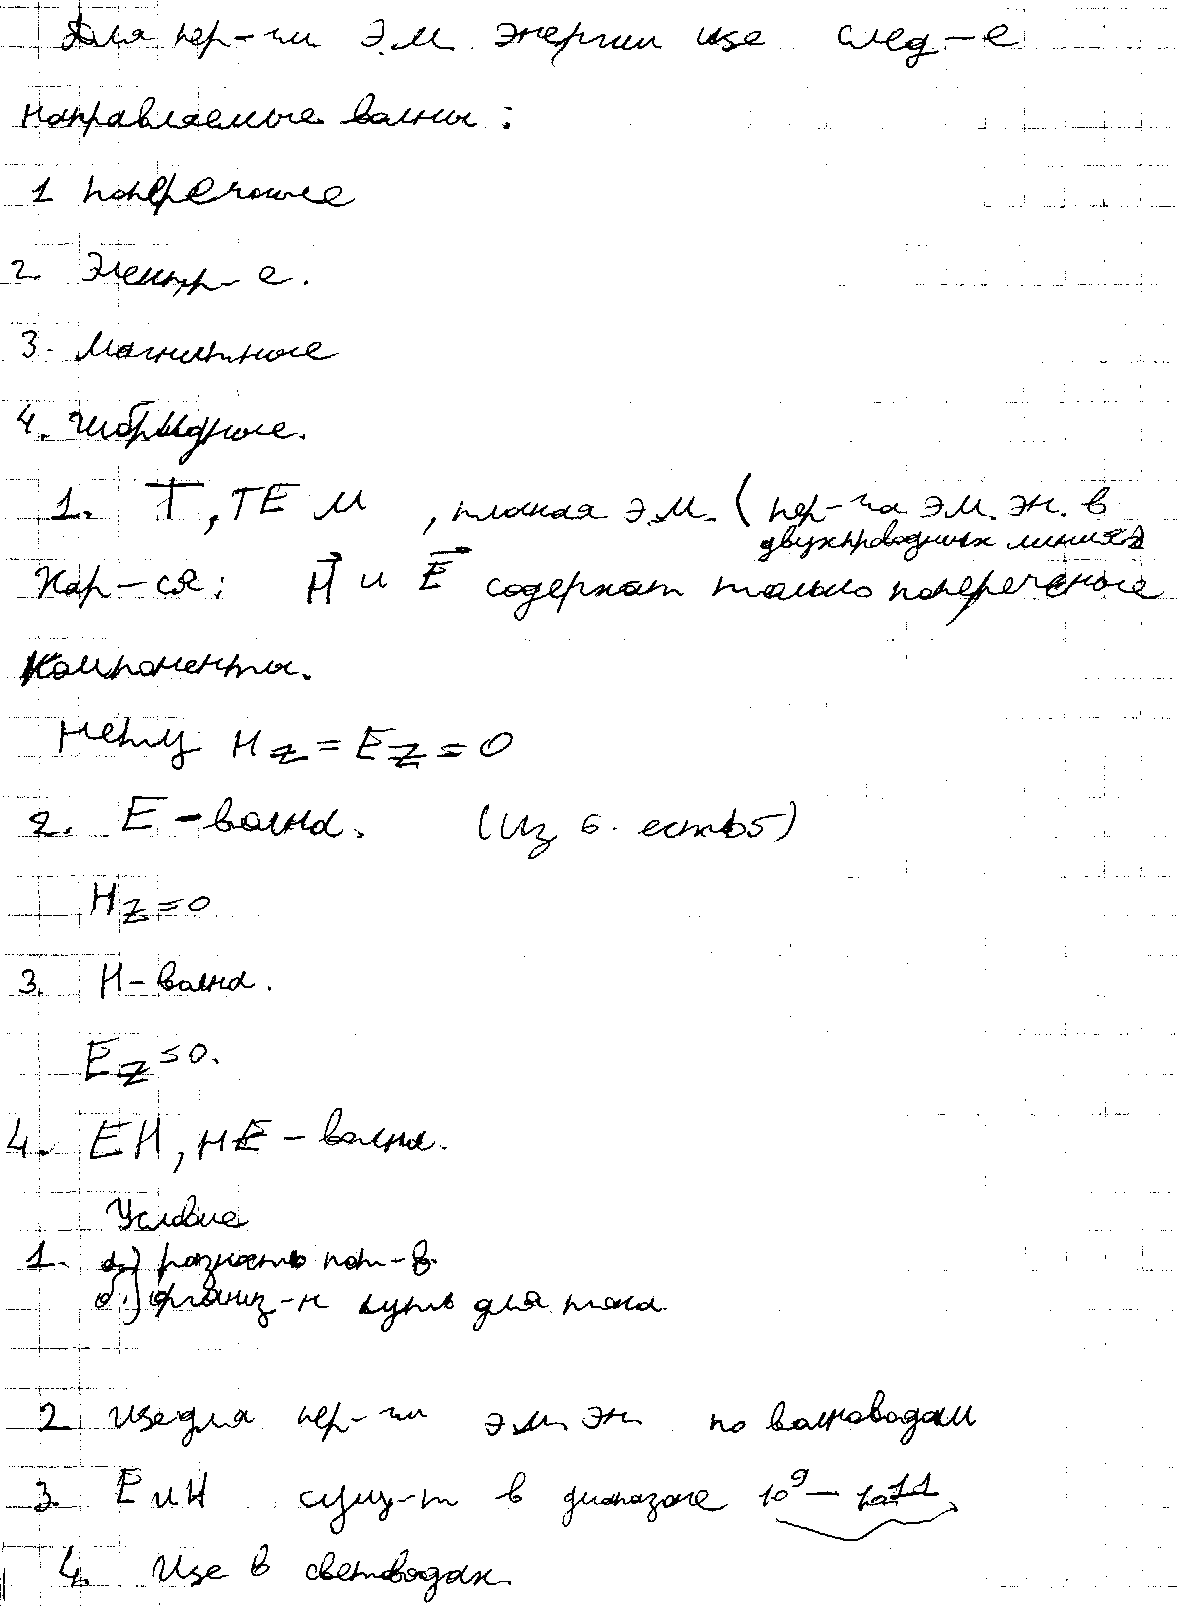 Для пер-чи Э.М. энергии исе след-е
направляемые волны:
1 поперечные
2. Электр-е.
3. Магнитные
4. Гибридные.
1. T, TEM, плокая э.м. (пер-ча эм. эн. в
двухпроводных линиях)
Хар-ся: H⃗ и E⃗ содержат только поперечные
компоненты.
нету Hz = Ez = 0
2. E - волна. (Из б. есть)
Hz = 0
3. H - волна.
Ez = 0.
4. EH, HE - волна.
Условие
1. а.) разность пот-в.
б.) организ-н путь для тока
2 исе для пер-чи эм. эн. по волноводам
3. E и H сущ-т в диапазоне 10⁹ - 10¹¹
4. Исе в световодах.